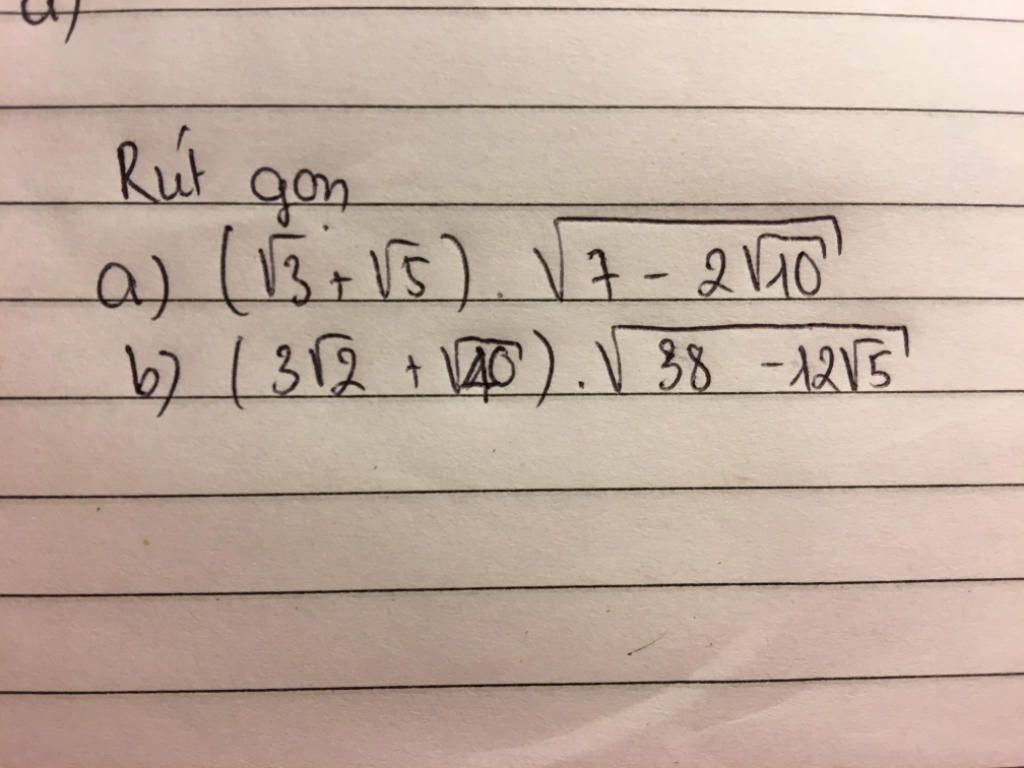 Rút gọn
a) (√3 + √5) . √(7 - 2√10)
b) (3√2 + √10) . √(38 - 12√5)